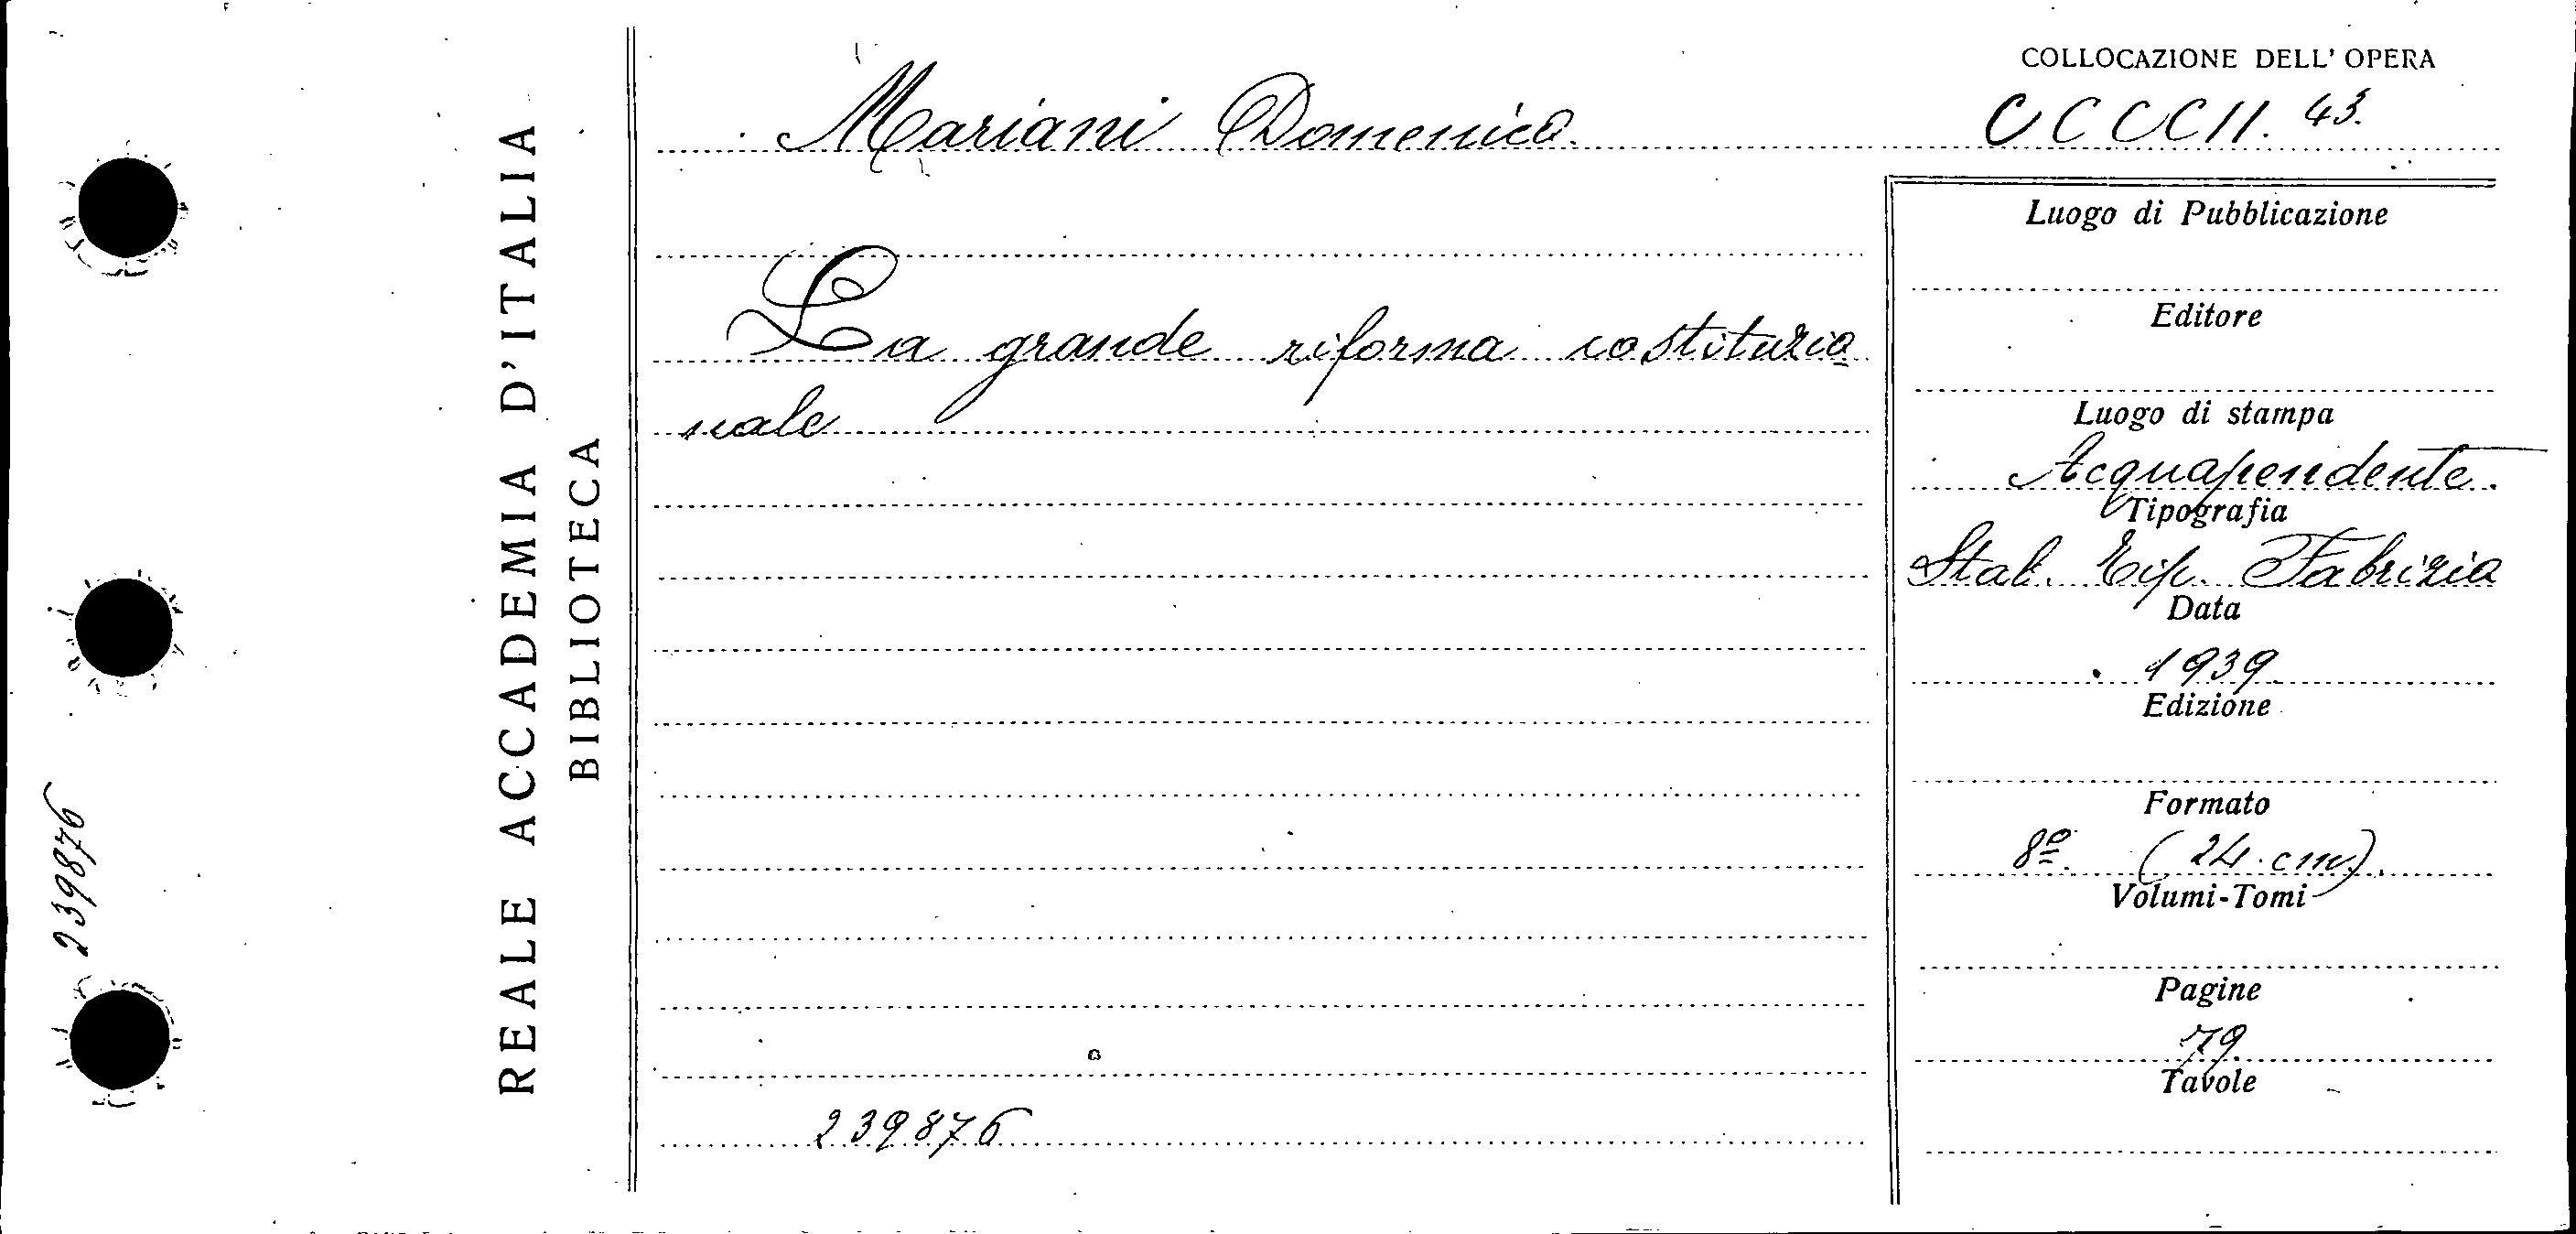 COLLOCAZIONE DELL' OPERA
Mariani Domenico.
CCCCII. 43.
REALE ACCADEMIA D'ITALIA
BIBLIOTECA
La grande riforma costituzio=
nale
239876
239876
Luogo di Pubblicazione
Editore
Luogo di stampa
Acquapendente.
Tipografia
Stab. Tip. Fabrizio
Data
1939.
Edizione
Formato
8º. (24 cm).
Volumi-Tomi
Pagine
79.
Tavole